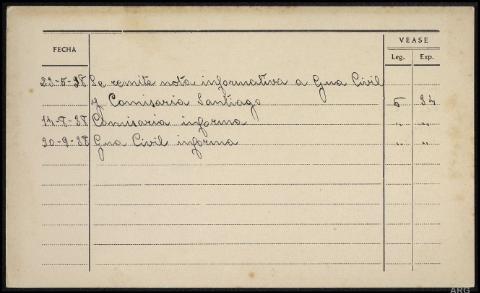 FECHA VEASE
Leg. Exp.
Se remite nota informativa a Gua Civil
y Comisaria Santiago 5 84
Comisaria informa " "
20-9-38 Gua Civil informa " "
ARG